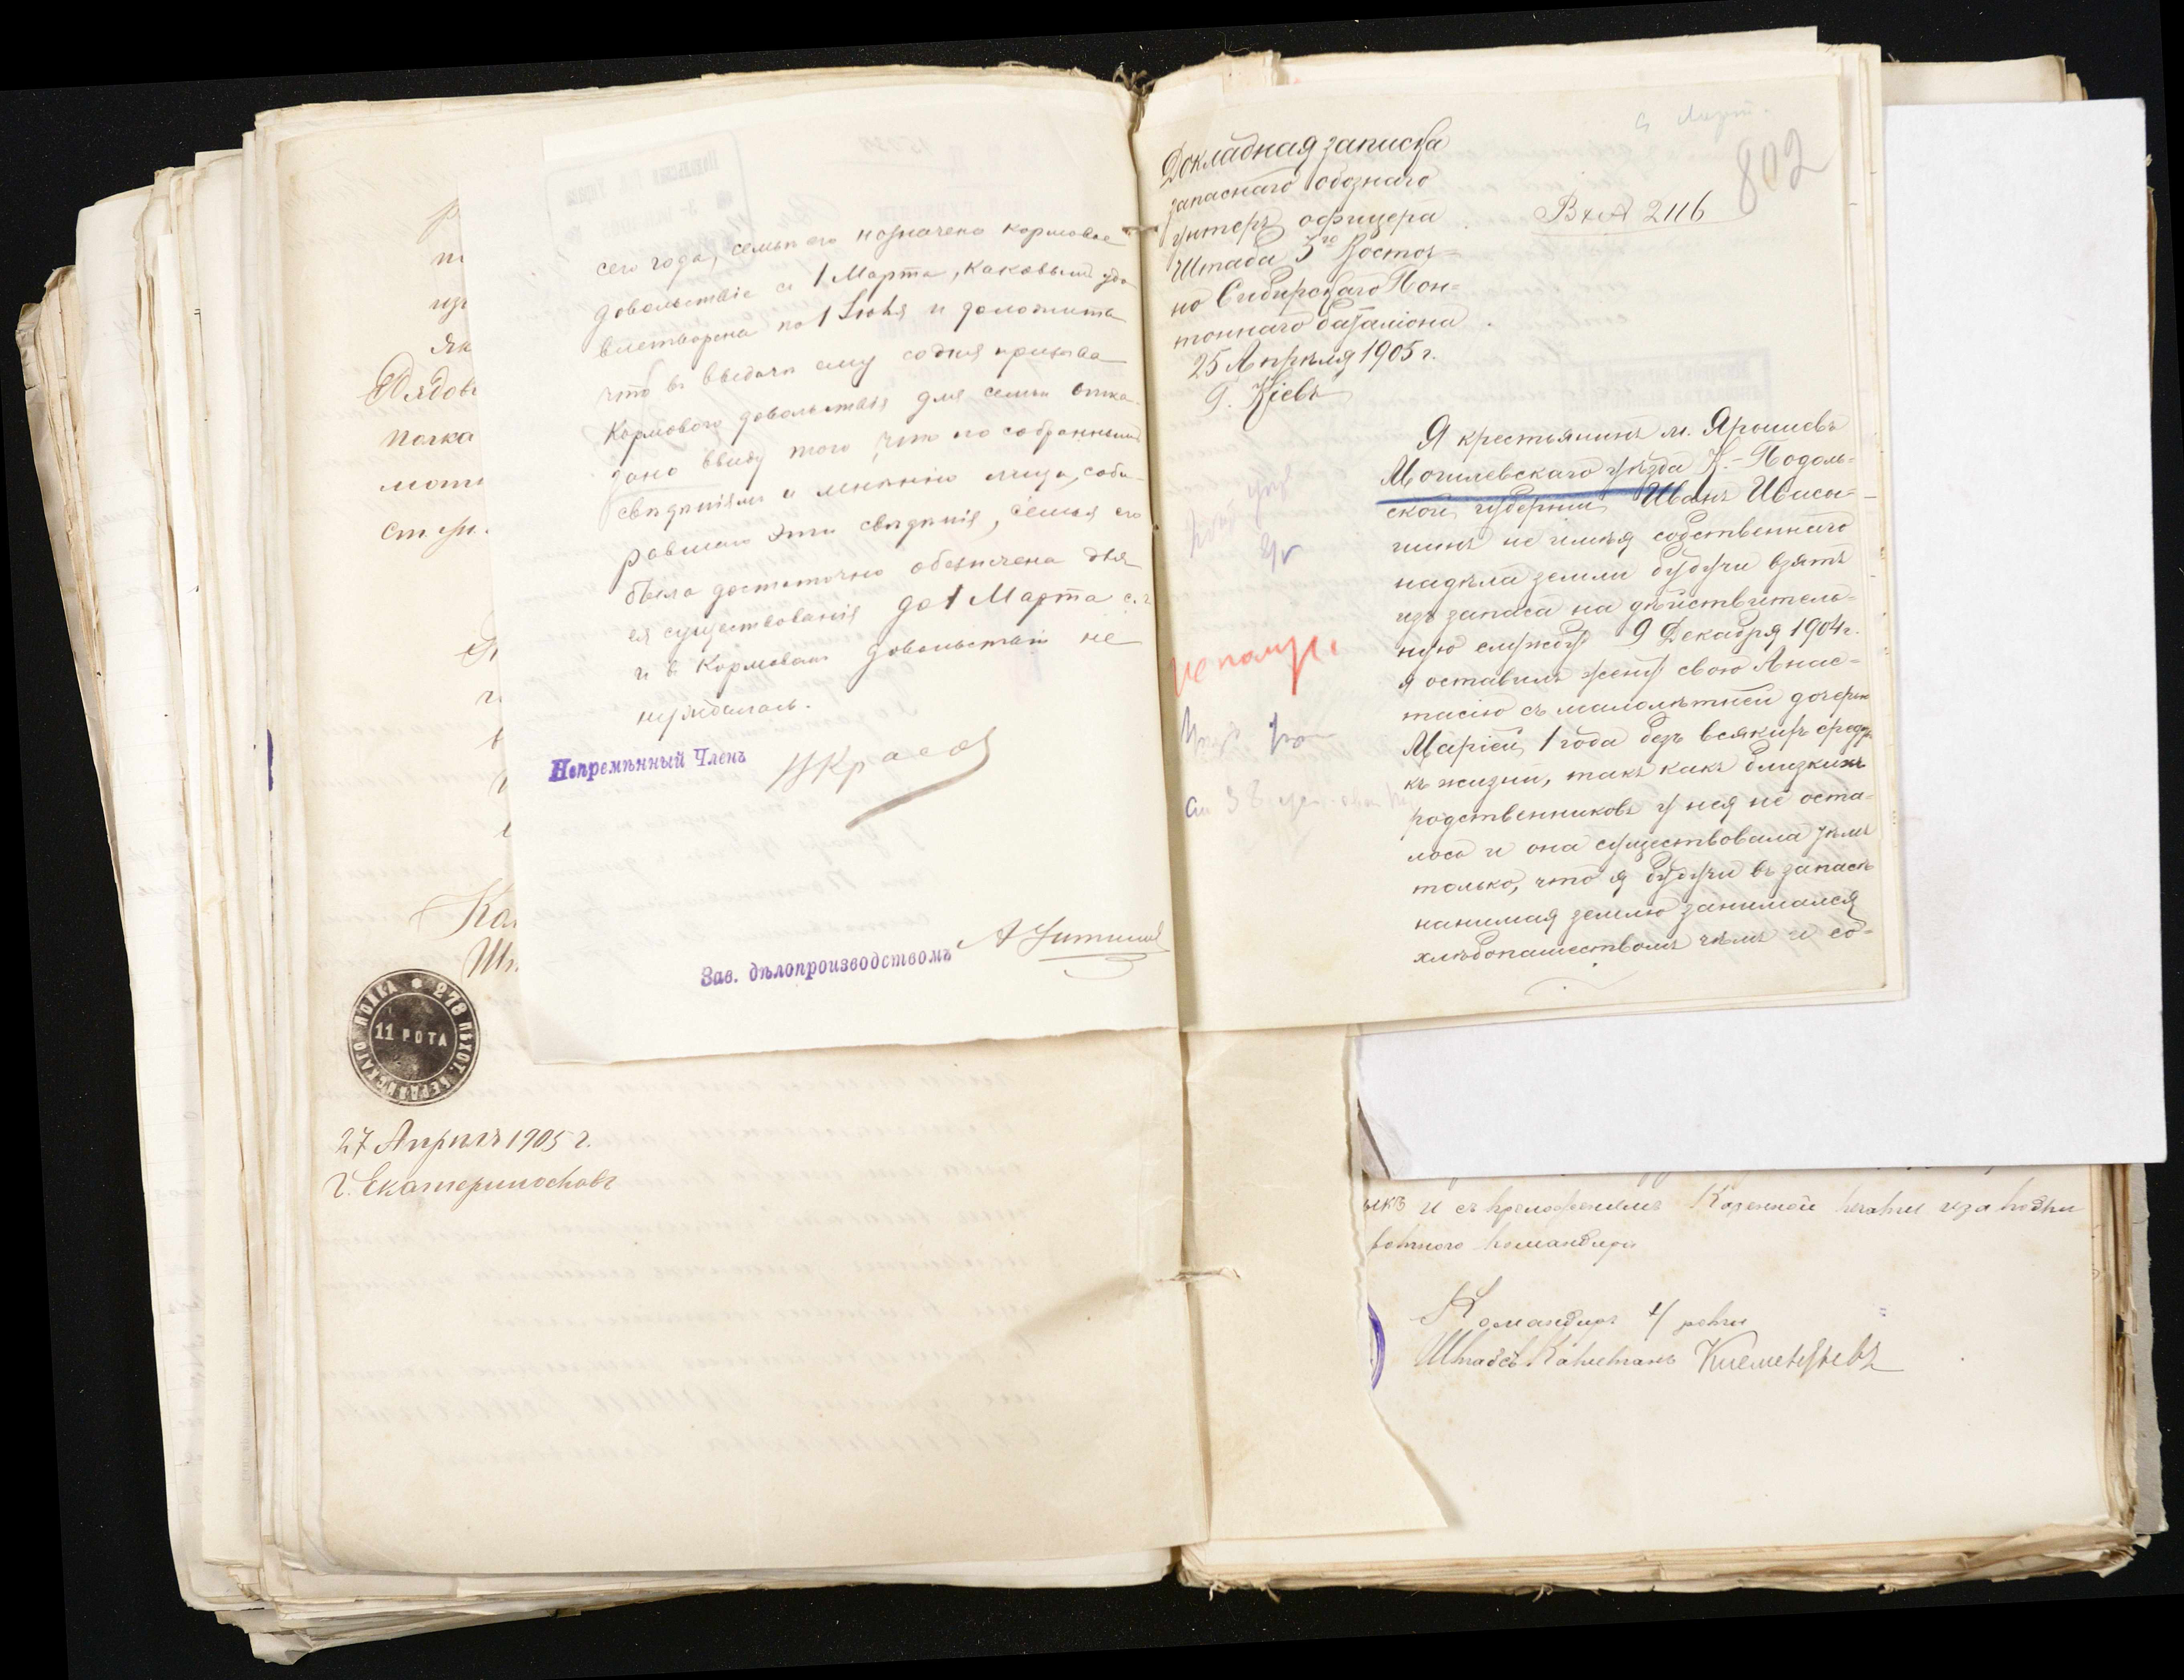 сего года, семьѣ его назначено кормовое
довольствіе съ 1 Марта, каковымъ удо-
влетворена по 1 Іюня и доложить
что въ выдачѣ ему со дня призыва
кормового довольствія для семьи отка-
зано ввиду того, что по собраннымъ
свѣдѣніямъ и мнѣнію лица, соби-
равшаго эти свѣдѣнія, семья его
была достаточно обезпечена для
ея существованія до 1 Марта с. г.
и въ кормовомъ довольствіи не
нуждалась.
Непремѣнный Членъ
Зав. дѣлопроизводствомъ
Рядов
полка
Ка
Шт
278 ПѢХОТ. БЕРДЯНСКАГО ПОЛКА
11 РОТА
27 Апрѣля 1905 г.
г. Екатеринославъ
802
Докладная записка
запаснаго обознаго
унтеръ офицера
Штаба 3го Восточ-
но Сибирскаго Пон-
тоннаго баталіона.
25 Апрѣля 1905 г.
Г. Кіевъ
Вх № 2116
Я крестьянинъ м. Ярышевъ
Могилевскаго уѣзда К.-Подоль-
ской губерніи Иванъ Иваси-
шинъ не имѣя собственнаго
надѣла земли будучи взятъ
изъ запаса на дѣйствитель-
ную службу 9 Декабря 1904 г.
я оставилъ жену свою Анас-
тасію съ малолѣтней дочерью
Маріей 1 года безъ всякихъ средствъ
къ жизни, такъ какъ близкихъ
родственниковъ у нея не оста-
лось и она существовала тѣмъ
только, что я будучи въ запасѣ
нанимая землю занимался
хлѣбопашествомъ чѣмъ и со-
и съ приложеніемъ казенной печати и за подпи
ротного командира
Командиръ 4/ роты
Штабсъ Капитанъ